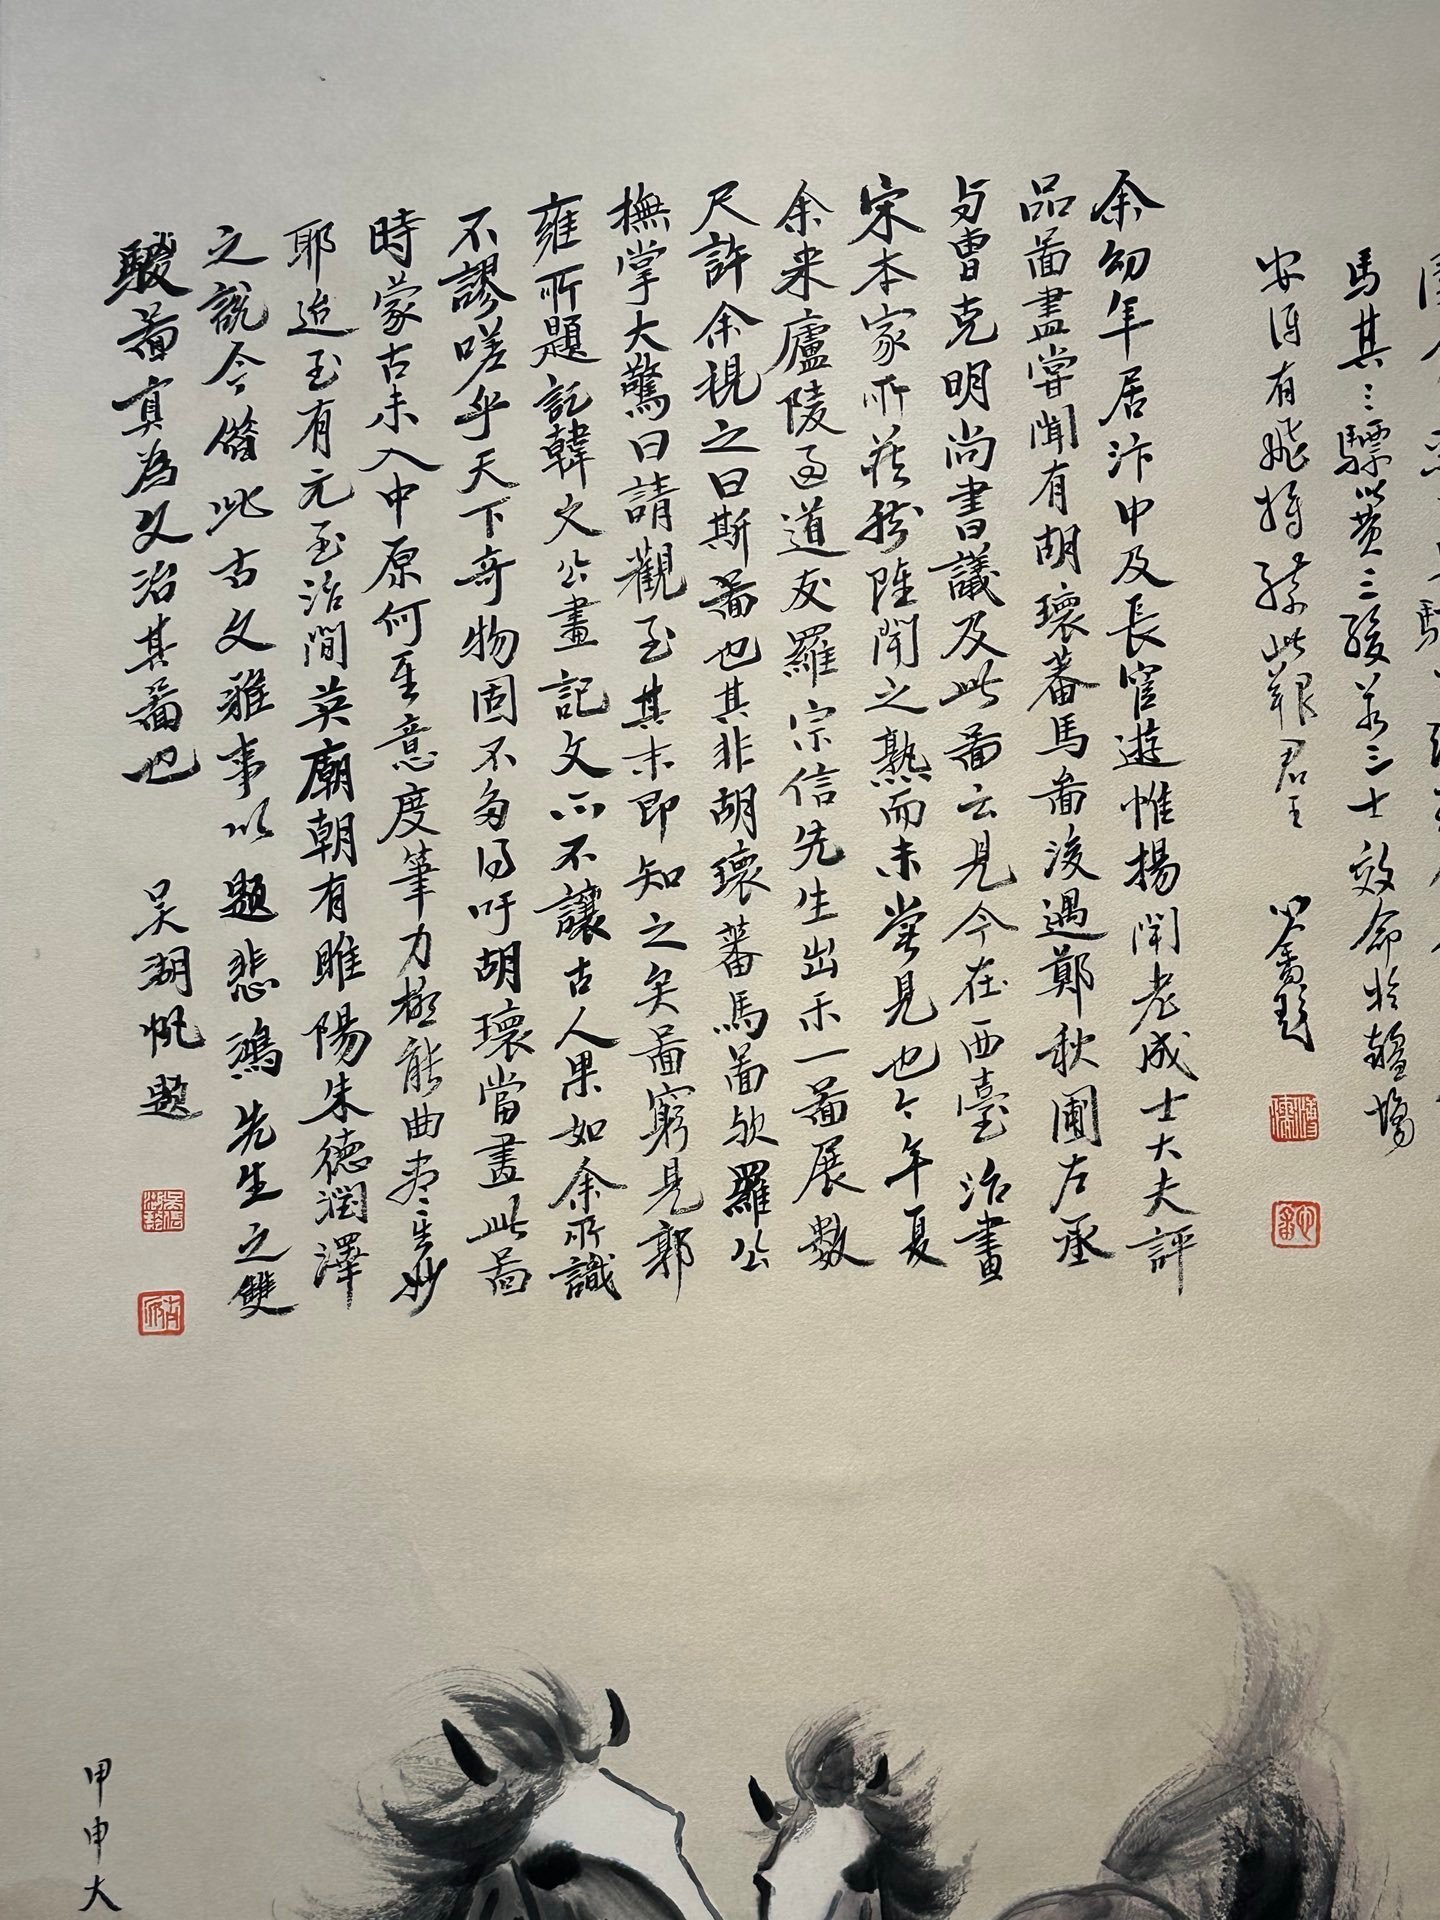 馬其二驃黃三駿并三士效命於疆場
安得有飛將縣此報君王
余幼年居汴中及長宦遊惟揚聞老成士大夫評
品畵盡嘗聞有胡瓌蕃馬畵後遇鄭秋圃左丞
与曹克明尚書議及此畵云見今在西臺治書
宋本家所藏於雖聞之熟而未嘗見也今年夏
余来廬陵過道友羅宗信先生出示一畵展數
尺許余視之曰斯畵也其非胡瓌蕃馬畵歟羅公
撫掌大驚曰請觀至其末即知之矣畵窮見郭
雍所題記韓文公畫記文亦不讓古人果如余所識
不謬嗟乎天下奇物固不多得吁胡瓌當畫此畵
時蒙古未入中原何其意度筆力極能曲盡其妙
耶迨至有元至治間英廟朝有睢陽朱德潤澤
之說今借此古文雅事以題悲鴻先生之雙
駿畵真為又治其畵也
吳湖帆題
甲申大